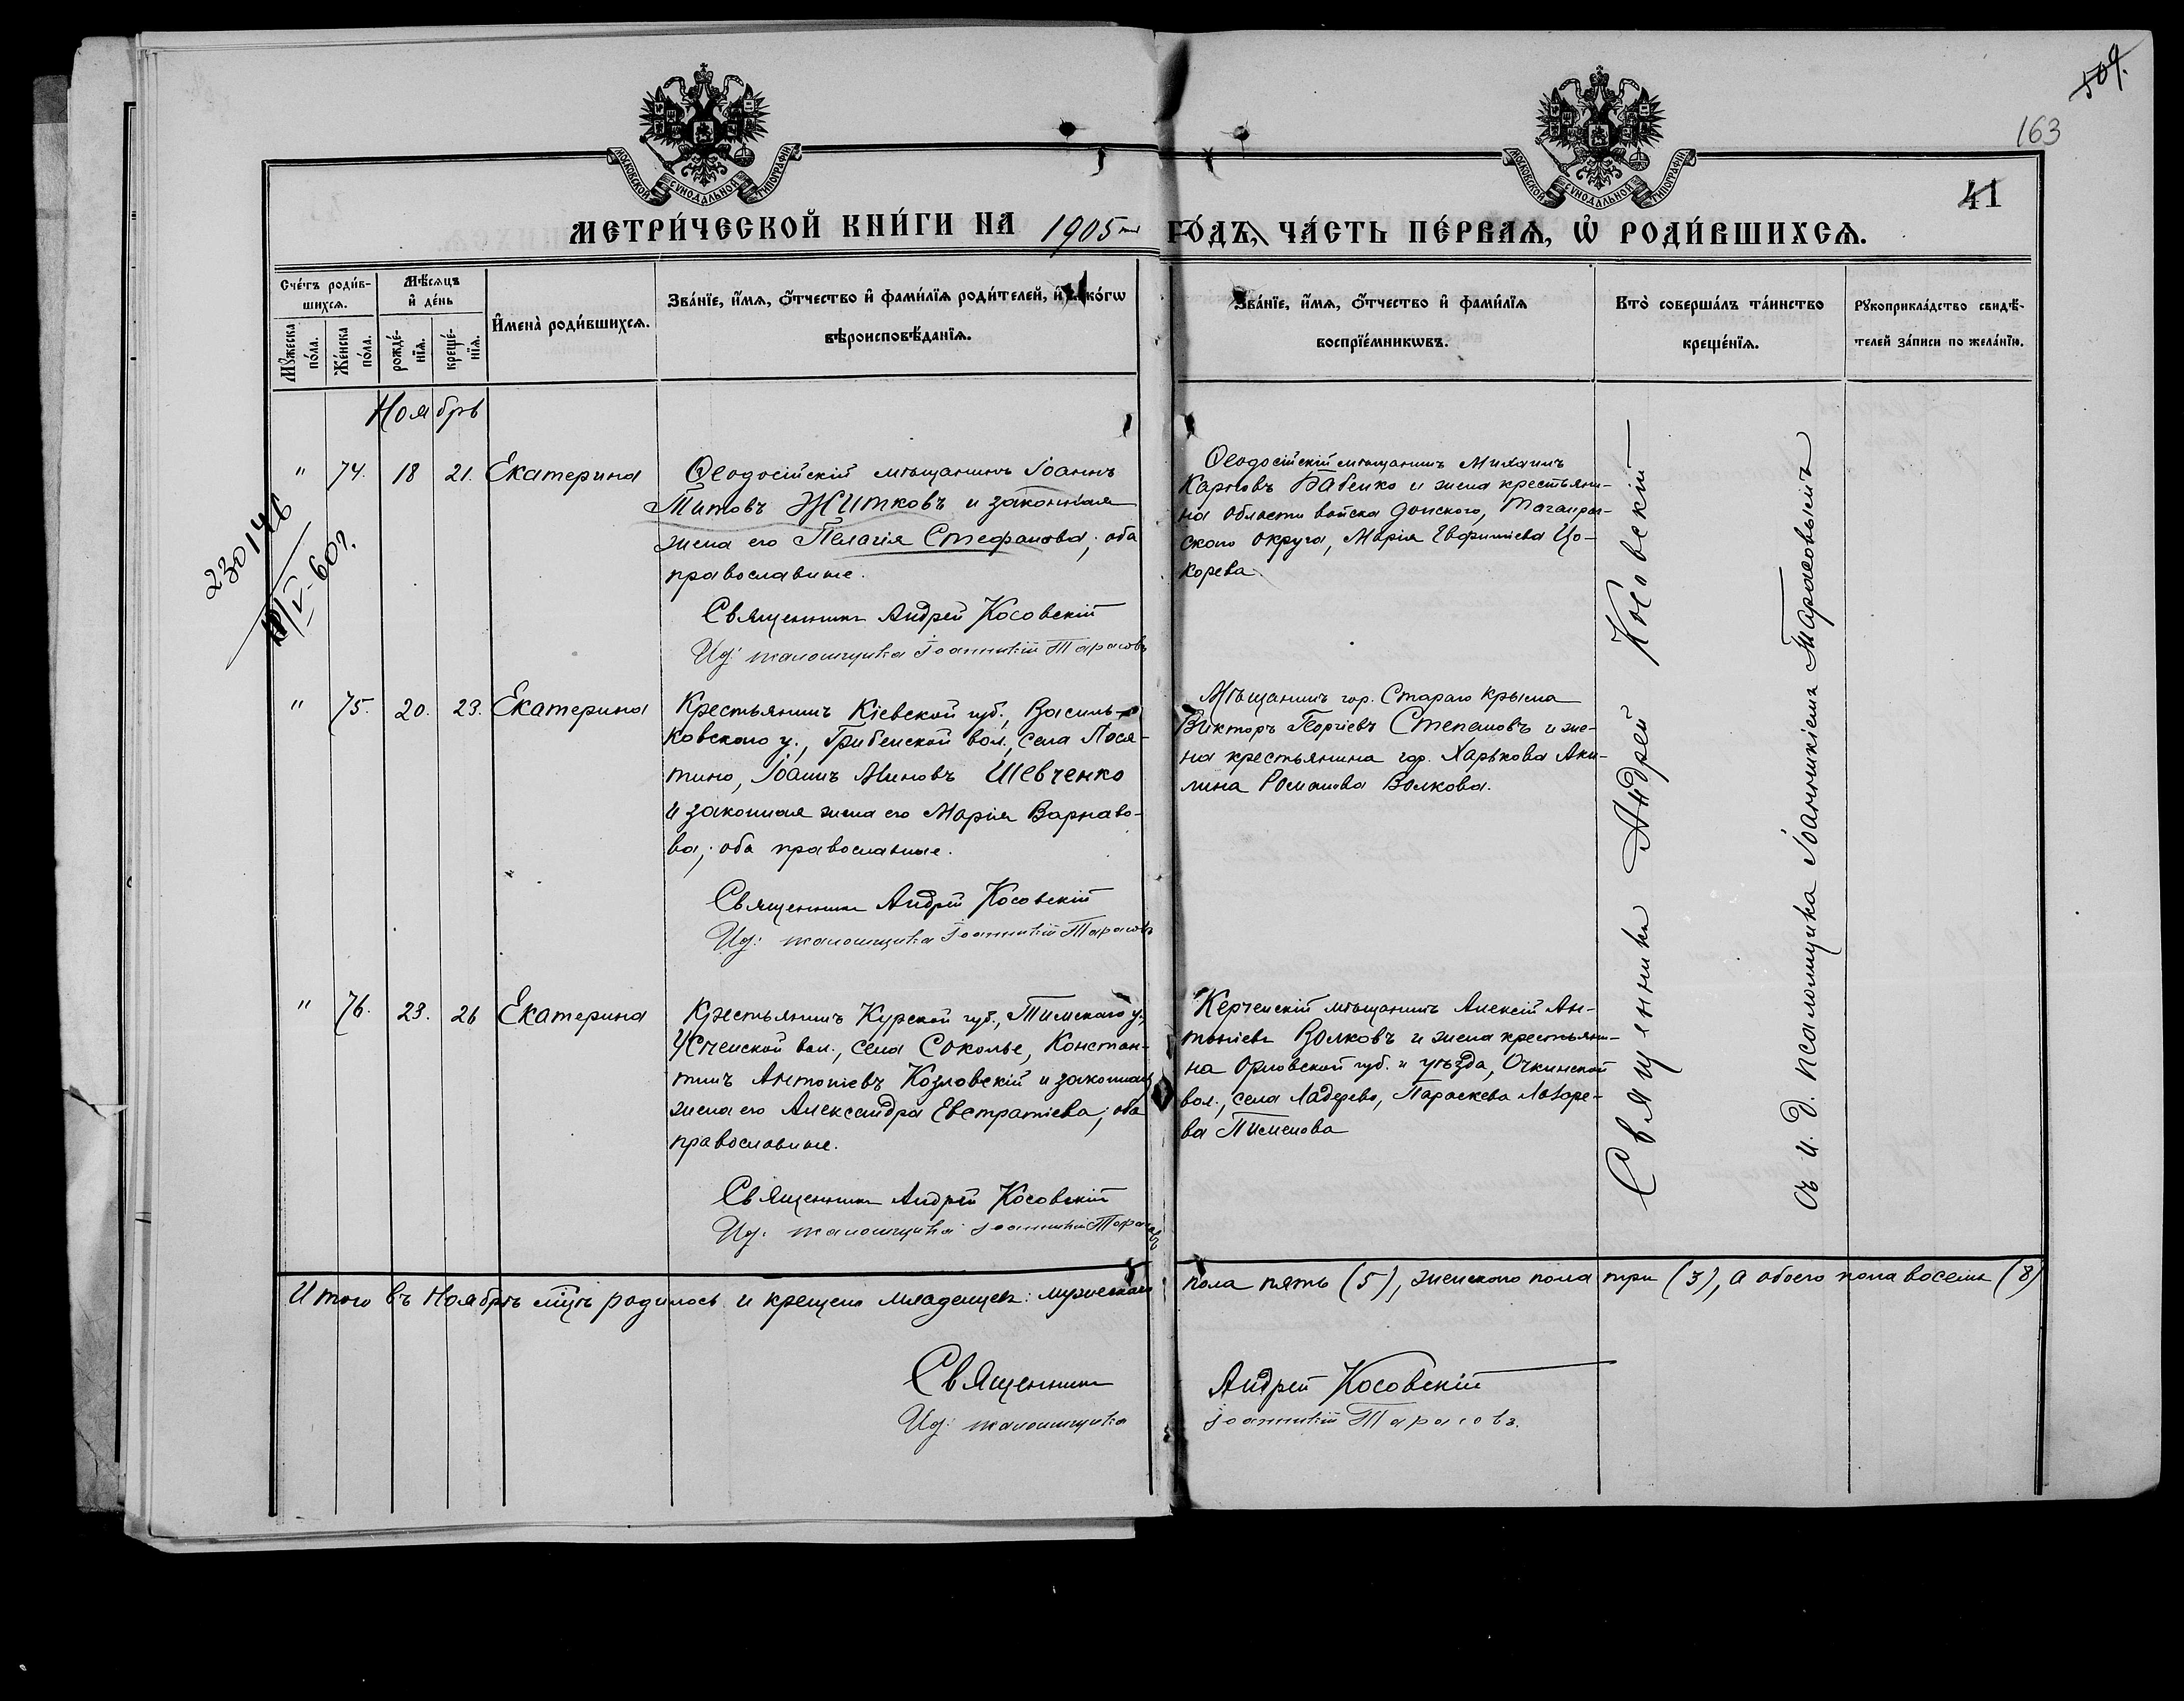 509.
163
41
МОСКОВСКОЙ СѴНОДАЛЬНОЙ ТИПОГРАФІИ
МОСКОВСКОЙ СѴНОДАЛЬНОЙ ТИПОГРАФІИ
МЕТРИ́ЧЕСКОЙ КНИ́ГИ НА 1905 ГО́ДЪ, ЧА́СТЬ ПЕ́РВАѦ, Ѡ҆ РОДИ́ВШИХСѦ.
Сче́тъ роди́в-
шихсѧ.
Мꙋ́жеска
по́ла.
Же́нска
по́ла.
Мѣ́сѧцъ
и҆ де́нь
рожде́-
нїѧ.
креще́-
нїѧ.
И҆мена̀ роди́вшихсѧ.
Зва́нїе, и҆́мѧ, ѻ҆́тчество и҆ фами́лїѧ роди́телей, и҆ како́гѡ
вѣроисповѣ́данїѧ.
Зва́нїе, и҆́мѧ, ѻ҆́тчество и҆ фами́лїѧ
воспрїе́мникѡвъ.
Кто̀ соверша́лъ та́инство
креще́нїѧ.
Рꙋкоприкла́дство свидѣ́-
телей за́писи по жела́нїю.
Ноябрь
230146
V-60г.
" 74. 18 21. Екатерина
Ѳеодосійскій мѣщанинъ Іоаннъ
Титовъ Житковъ и законная
жена его Пелагія Стефанова; оба
православные.
Священникъ Андрей Косовскій
Ид: псаломщика Іоанникій Тарасовъ
Ѳеодосійскій мѣщанинъ Михаилъ
Карповъ Бабенко и жена крестьяни-
на области войска Донского, Таганрог-
скаго округа, Марія Евфиміева Цо-
корева.
" 75. 20. 23. Екатерина
Крестьянинъ Кіевской губ., Василь-
ковскаго у., Гребенской вол., села Лося-
тино, Іоаннъ Миновъ Шевченко
и законная жена его Марія Варнаво-
ва; оба православные.
Священникъ Андрей Косовскій
Ид: псаломщика Іоанникій Тарасовъ
Мѣщанинъ гор. Стараго Крыма
Викторъ Георгіевъ Степановъ и же-
на крестьянина гор. Харькова Аки-
лина Романова Волкова.
" 76. 23. 26 Екатерина
Крестьянинъ Курской губ., Тимскаго у.,
Успенской вол., села Соколье, Констан-
тинъ Антоніевъ Козловскій и законная
жена его Александра Евстратіева; оба
православные.
Священникъ Андрей Косовскій
Ид: псаломщика Іоанникій Тарасовъ
Керченскій мѣщанинъ Алексій Ан-
тоніевъ Волковъ и жена крестьяни-
на Орловской губ. и уѣзда, Очкинской
вол., села Ладерево, Параскева Лазаре-
ва Пименова
Священникъ Андрей Косовскій
съ и. д. псаломщика Іоанникіемъ Тарасовымъ
Итого въ Ноябрѣ мцѣ родилось и крещено младенцевъ: мужескаго пола пять (5), женскаго пола три (3), а обоего пола восемь (8)
Священникъ Андрей Косовскій
Ид: псаломщика Іоанникій Тарасовъ.